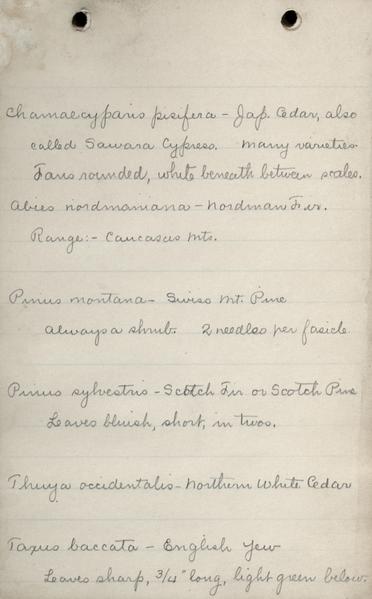 Chamaecyparis pisifera - Jap. Cedar, also
called Sawara Cypress. many varieties.
Fans rounded, white beneath between scales.
Abies nordmaniana - Nordman Fir.
Range:- Caucasus Mts.
Pinus montana - Swiss Mt. Pine
always a shrub. 2 needles per fasicle.
Pinus sylvestris - Scotch Fir or Scotch Pine
Leaves bluish, short, in twos.
Thuya occidentalis - Northern White Cedar
Taxus baccata - English Yew
Leaves sharp, 3/4" long, light green below.